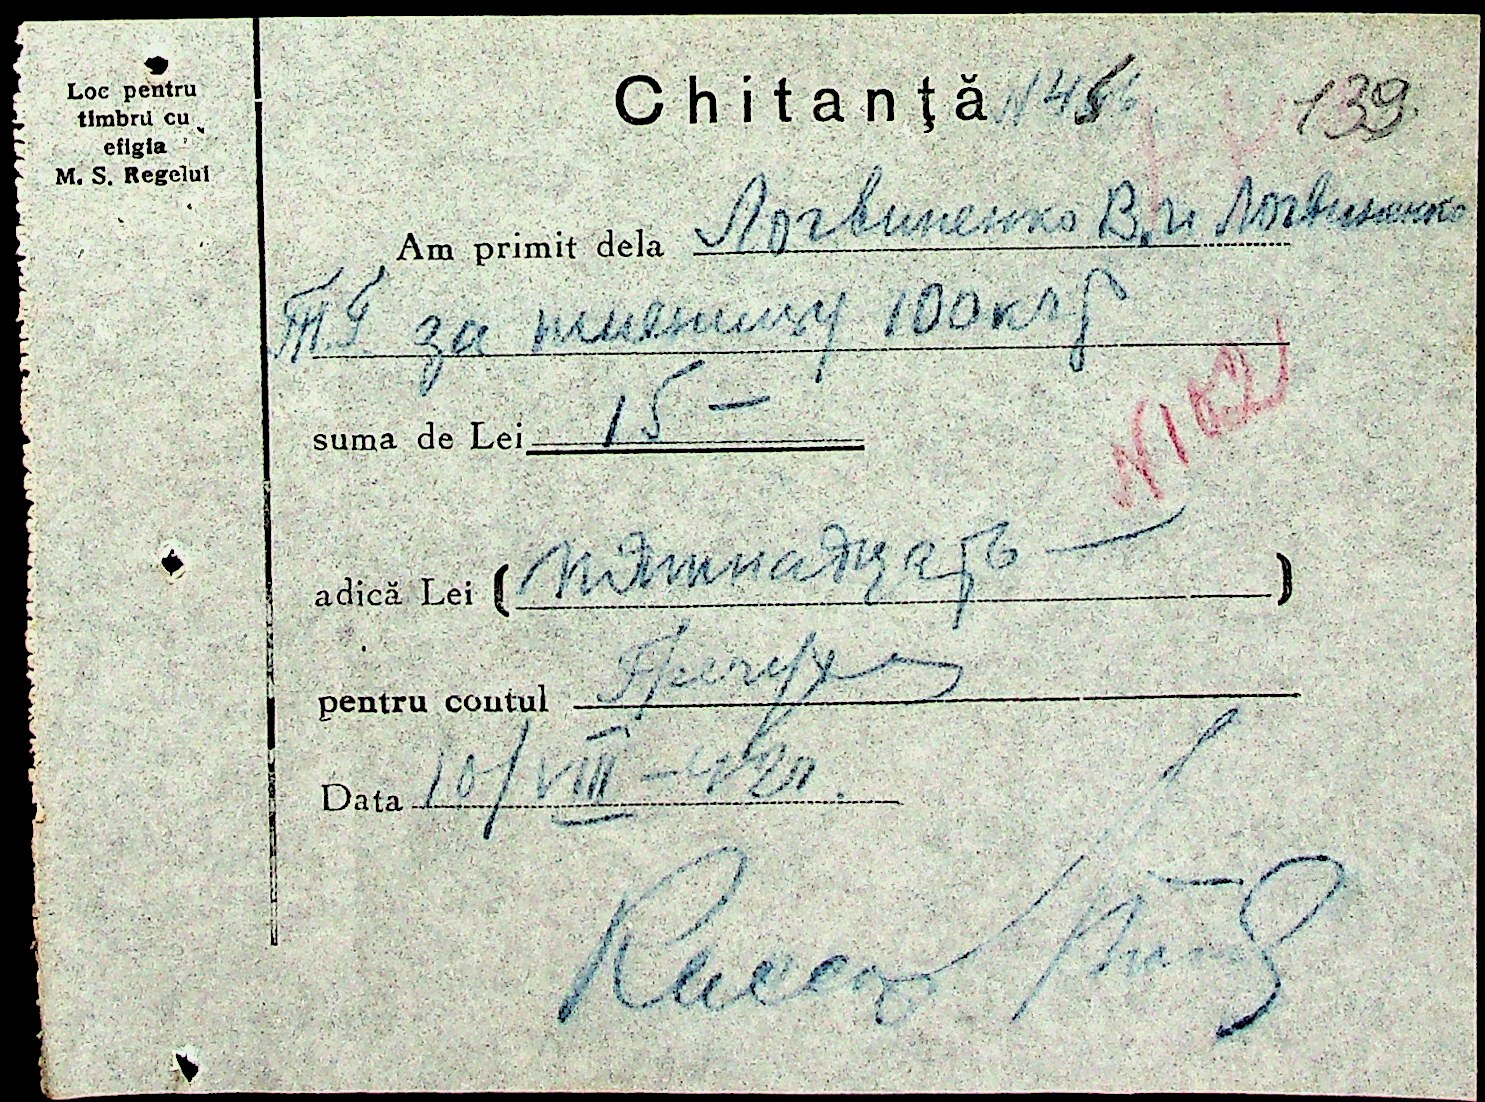 Loc pentru
timbru cu
efigia
M. S. Regelui
Chitanţă N 456
139
Am primit dela Логвиненко В. и Логвиненко
за пшеницу 100 клг
suma de Lei 15 —
N 102
adică Lei (пятнадцать —)
pentru contul
Data 10/VIII - 42 г.